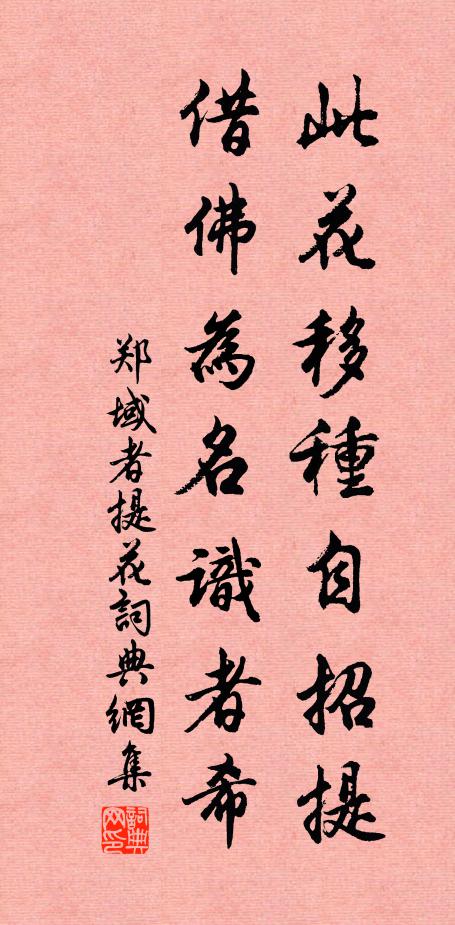 此花移種自招提
借佛為名識者希
郑域者提花詞典網集
詞典网印